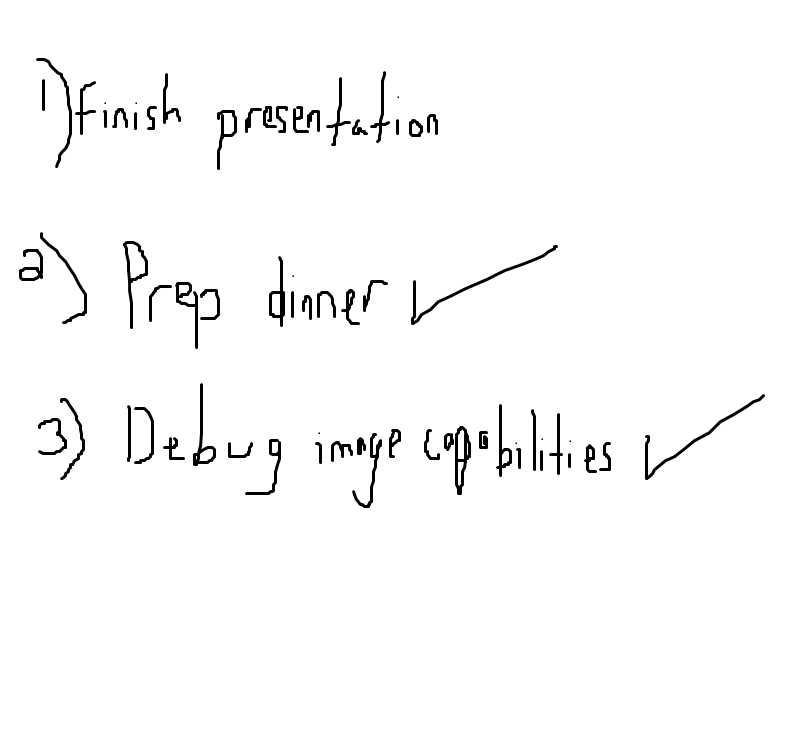 1) Finish presentation
2) Prep dinner ✓
3) Debug image capabilities ✓